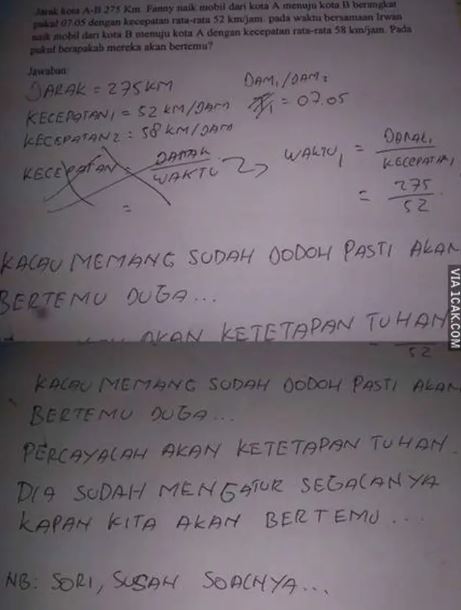 Jarak kota A-B 275 Km. Fanny naik mobil dari kota A menuju kota B berangkat
pukul 07.05 dengan kecepatan rata-rata 52 km/jam. pada waktu bersamaan Irwan
naik mobil dari kota B menuju kota A dengan kecepatan rata-rata 58 km/jam. Pada
pukul berapakah mereka akan bertemu?
Jawaban:
JARAK = 275 KM
JAM1/JAM2
KECEPATAN1 = 52 KM/JAM
= 07.05
KECEPATAN2 = 58 KM/JAM
KECEPATAN = JARAK / WAKTU
=
WAKTU1 = JARAK1 / KECEPATAN1
= 275 / 52
KALAU MEMANG SUDAH JODOH PASTI AKAN
BERTEMU JUGA...
AKAN KETETAPAN TUHAN
52
KALAU MEMANG SUDAH JODOH PASTI AKAN
BERTEMU JUGA...
PERCAYALAH AKAN KETETAPAN TUHAN.
DIA SUDAH MENGATUR SEGALANYA
KAPAN KITA AKAN BERTEMU...
NB: SORI, SUSAH SOALNYA...
VIA 1CAK.COM